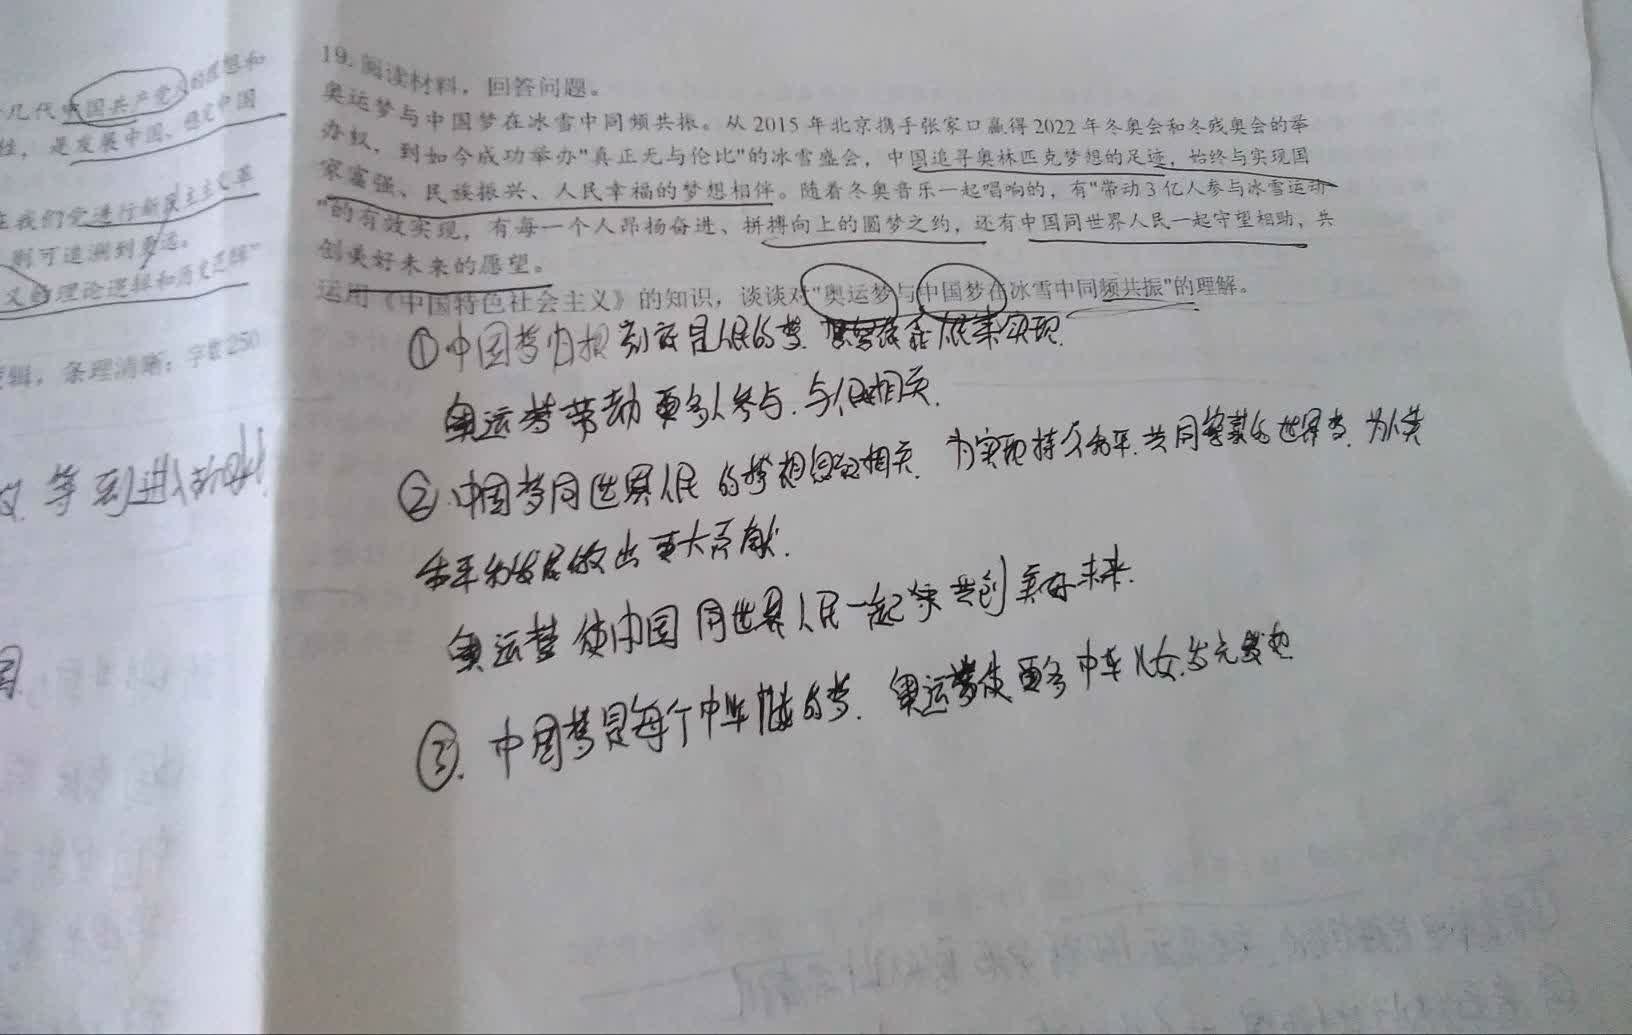 几代中国共产党人的理想和
性，是发展中国、稳定中国
在我们党进行新民主主义革
则可追溯到更远。
义的理论逻辑和历史逻辑"
逻辑，条理清晰；字数250
等 到进入新时代
19. 阅读材料，回答问题。
奥运梦与中国梦在冰雪中同频共振。从2015年北京携手张家口赢得2022年冬奥会和冬残奥会的举
办权，到如今成功举办"真正无与伦比"的冰雪盛会，中国追寻奥林匹克梦想的足迹，始终与实现国
家富强、民族振兴、人民幸福的梦想相伴。随着冬奥音乐一起唱响的，有"带动3亿人参与冰雪运动
"的有效实现，有每一个人昂扬奋进、拼搏向上的圆梦之约，还有中国同世界人民一起守望相助、共
创美好未来的愿望。
运用《中国特色社会主义》的知识，谈谈对"奥运梦与中国梦在冰雪中同频共振"的理解。
①中国梦归根到底是人民的梦.
奥运梦带动更多人参与.与人民相关.
②.中国梦同世界人民的梦想息息相关.为实现持久和平.共同繁荣的世界梦.为人类
和平和发展做出更大贡献.
奥运梦使中国同世界人民一起 共创美好未来.
③.中国梦是每个中华儿女的梦.奥运梦使更多中华儿女